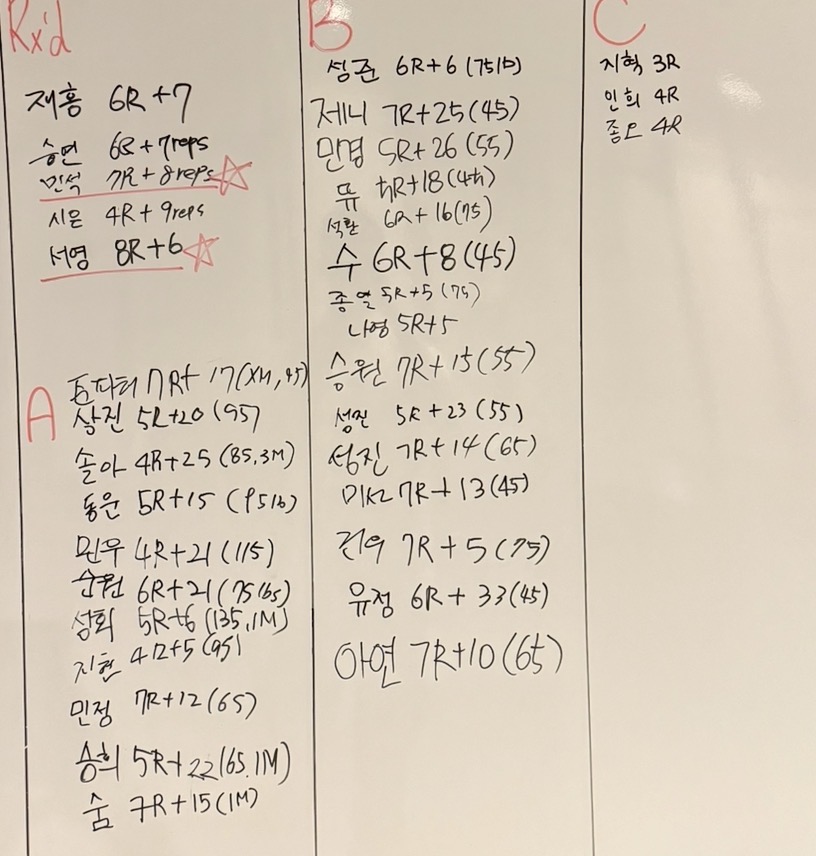 Rx'd
재홍 6R+7
승면 6R+7reps
민석 7R+8reps
시은 4R+9reps
서영 8R+6
A
7R+17(XM, 45)
상진 5R+20 (95)
솔아 4R+25 (85,3M)
동운 5R+15 (95lb)
민우 4R+21 (115)
순원 6R+21(75lbs)
성희 5R+6 (135,1M)
지현 4R+5 (95)
민정 7R+12(65)
승희 5R+22(65.1M)
숨 7R+15(1M)
B
성준 6R+6(75lb)
제니 7R+25(45)
민경 5R+26(55)
5R+18(45)
석환 6R+16(75)
수 6R+8(45)
종열 5R+5(75)
나영 5R+5
승원 7R+15(55)
성진 5R+23(55)
성진 7R+14(65)
7R+13(45)
7R+5(75)
유정 6R+33(45)
아연 7R+10(65)
C
지혁 3R
인희 4R
4R